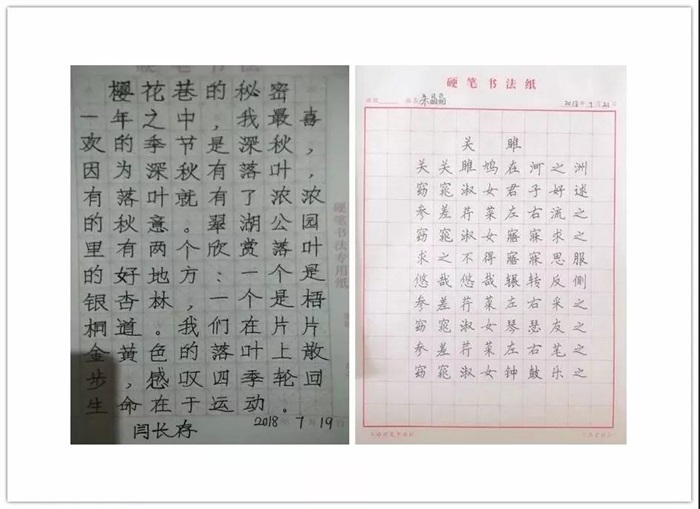 硬笔书法
樱花巷的秘密
一年之中,我最喜
欢的季节是深秋,
因为深秋有落叶,
有落叶就有了浓浓
的秋意。翠湖公园
里有两个欣赏落叶
的好地方:一个是
银杏林,一个是梧
桐道。我们在片片
金黄色的落叶上散
步,感叹四季轮回
生命在于运动。
闫长存 2018 7 19
硬笔书法专用纸
硬笔书法纸
2018年7月21
关雎
关关雎鸠在河之洲
窈窕淑女君子好逑
参差荇菜左右流之
窈窕淑女寤寐求之
求之不得寤寐思服
悠哉悠哉辗转反侧
参差荇菜左右采之
窈窕淑女琴瑟友之
参差荇菜左右芼之
窈窕淑女钟鼓乐之